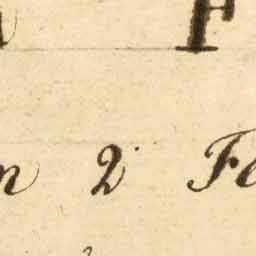 F
n 2 Fe